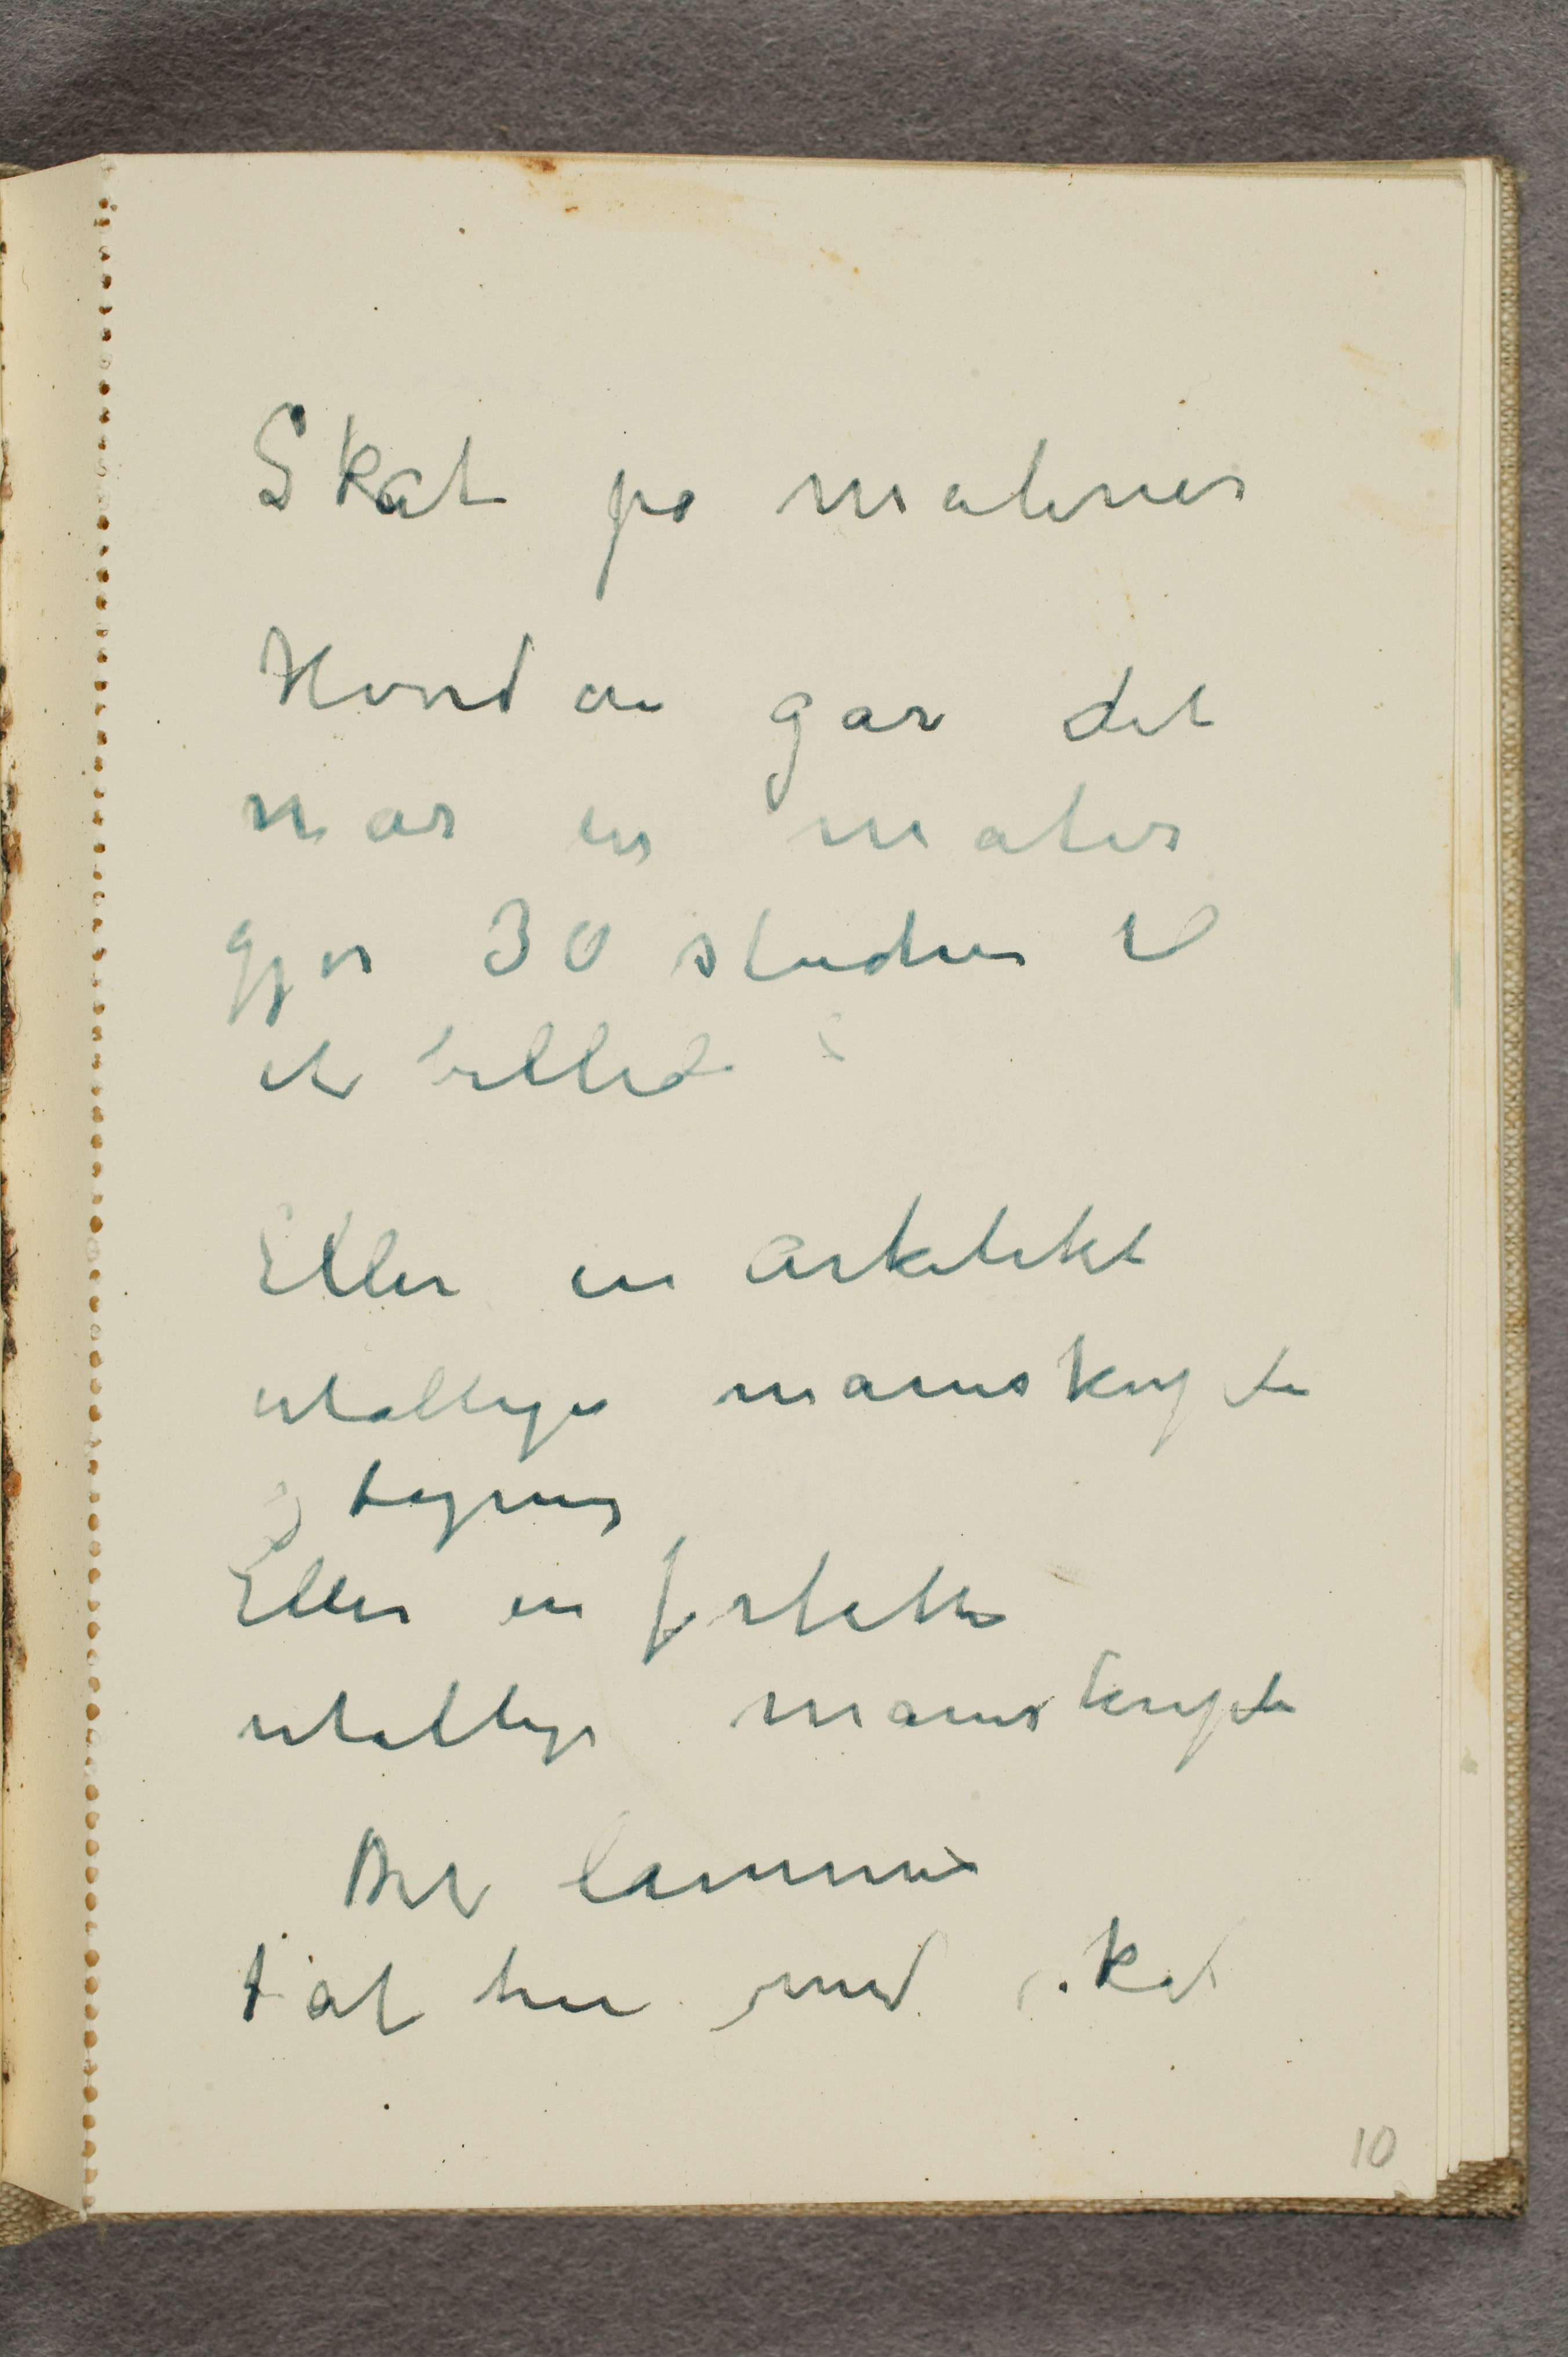 Skat på malerier
Hvordan går det
når en maler
gjør 30 studier til
et billede
Eller en arkitekt
utallige manuskripter
og tegning
Eller en forfatter
utallige manuskripter
Det kommer
med skat
10